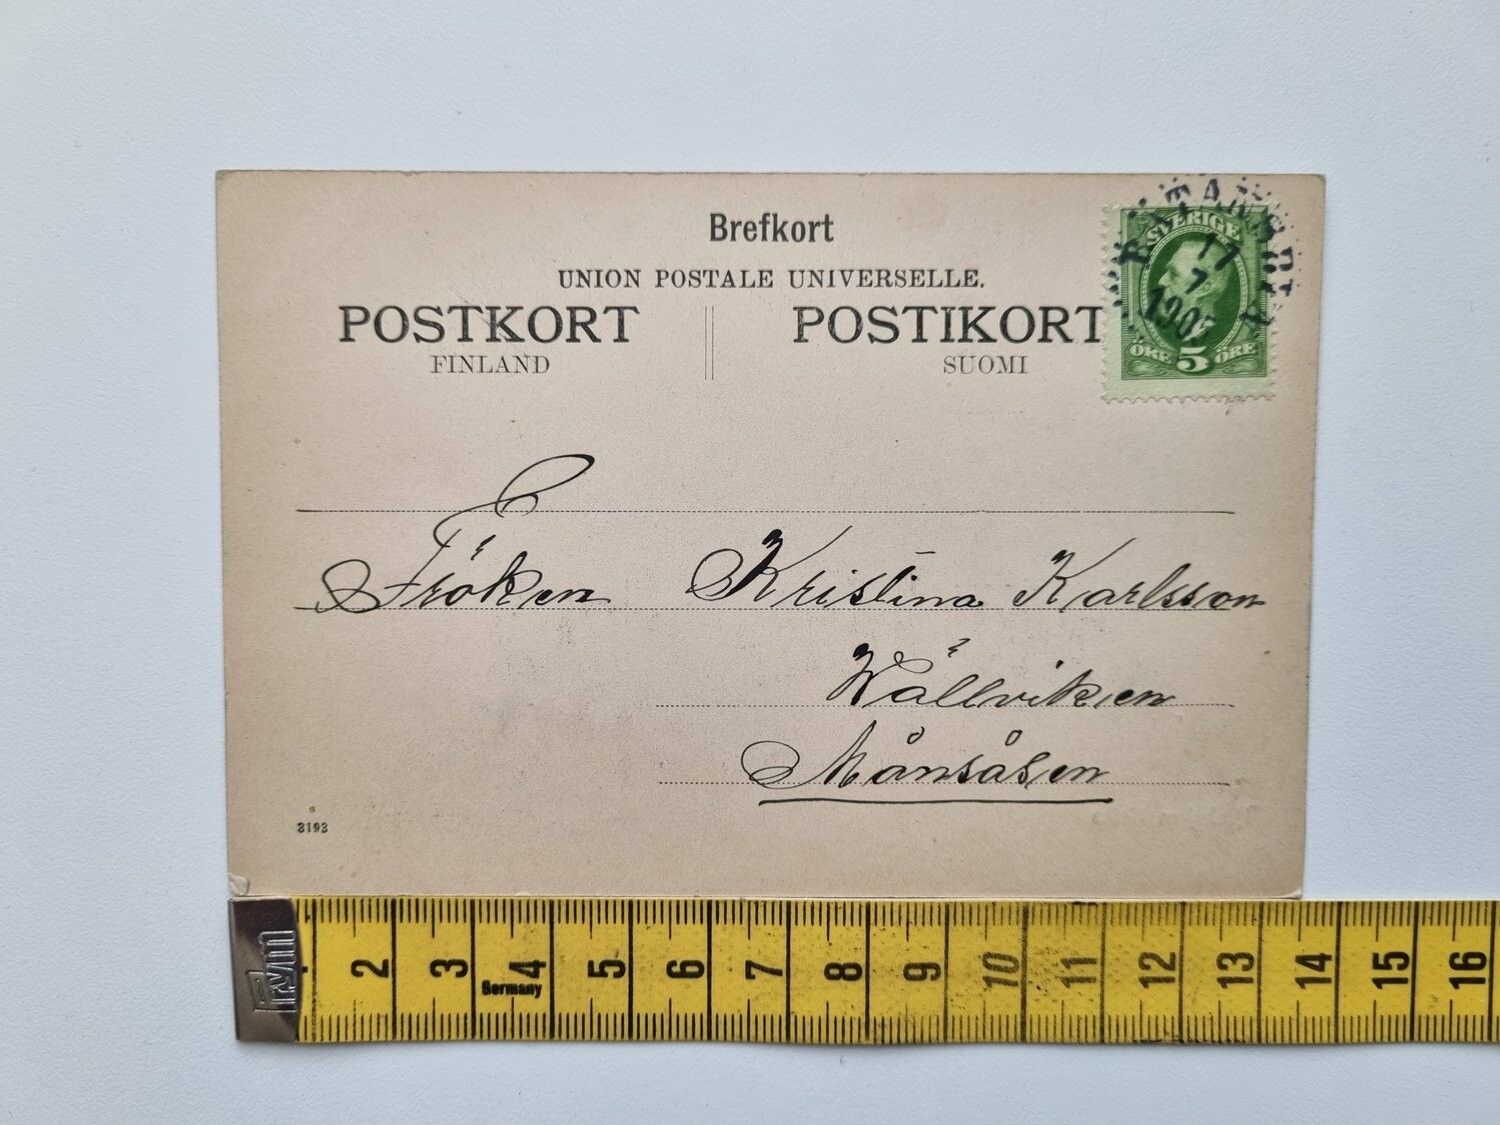 Brefkort
UNION POSTALE UNIVERSELLE.
POSTKORT POSTIKORT
FINLAND SUOMI
SVERIGE
17
7
ÖRE 5 ÖRE
Fröken Kristina Karlsson
Wällviken
Månsåsen
3193
Prym
2 3 4 5 6 7 8 9 10 11 12 13 14 15 16
Germany